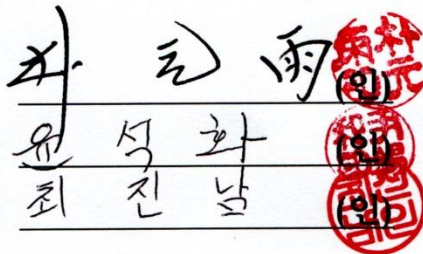 朴 元 雨 (인)
윤 석 화 (인)
최 진 남 (인)